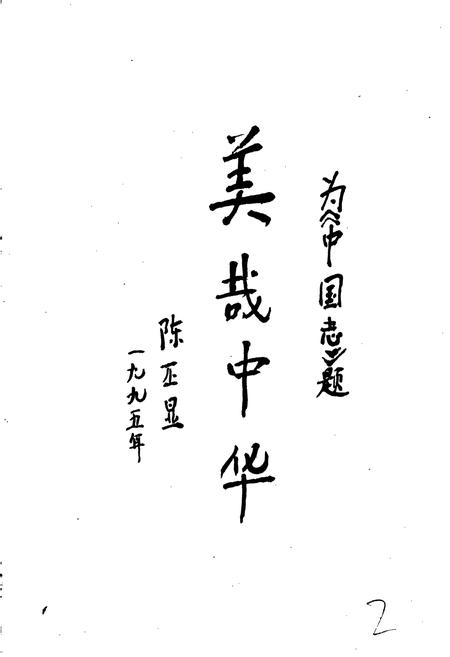 为《中国志》题
美哉中华
陈丕显
一九九五年
2